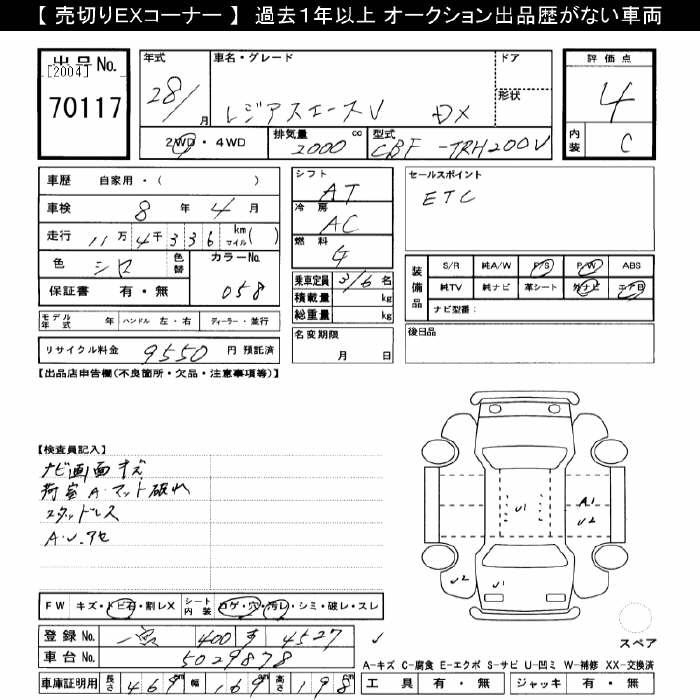 【 売切りEXコーナー 】 過去1年以上 オークション出品歴がない車両
出品 No.
[2004]
70117
年式
28/ 月
車名・グレード
レジアスエースV DX
ドア
形状
評価点
4
内装
C
2WD・4WD
排気量 2000 cc
型式 CBF-TRH200V
車歴 自家用・( )
車検 8 年 4 月
走行 11万 4千 3 3 6 km マイル( )
色 シロ
色替
カラーNo.
058
保証書 有・無
モデル年式 年 ハンドル 左・右 ディーラー・並行
リサイクル料金 9550 円 預託済
シフト
AT
冷房
AC
燃料
乗車定員 3/6 名
積載量 kg
総重量 kg
名変期限
月 日
セールスポイント
ETC
装備品
S/R 純A/W P/S P/W ABS
純TV 純ナビ 革シート 外ナビ エアB
ナビ型番:
後日品
【出品店申告欄(不良箇所・欠品・注意事項等)】
【検査員記入】
ナビ画面キズ
荷室A・マット破れ
スタッドレス
A・U・アセ
U1
A1
U2
U2
U1
FW キズ・トビ石・割レX
シート内装 コゲ・穴・汚レ・シミ・破レ・スレ
登録 No. 400 す 4527
車台 No. 5029878
車庫証明用 長さ 469 cm 幅 169 cm 高さ 198 cm
スペア
A-キズ C-腐食 E-エクボ S-サビ U-凹ミ W-補修 XX-交換済
工具 有・無 ジャッキ 有・無